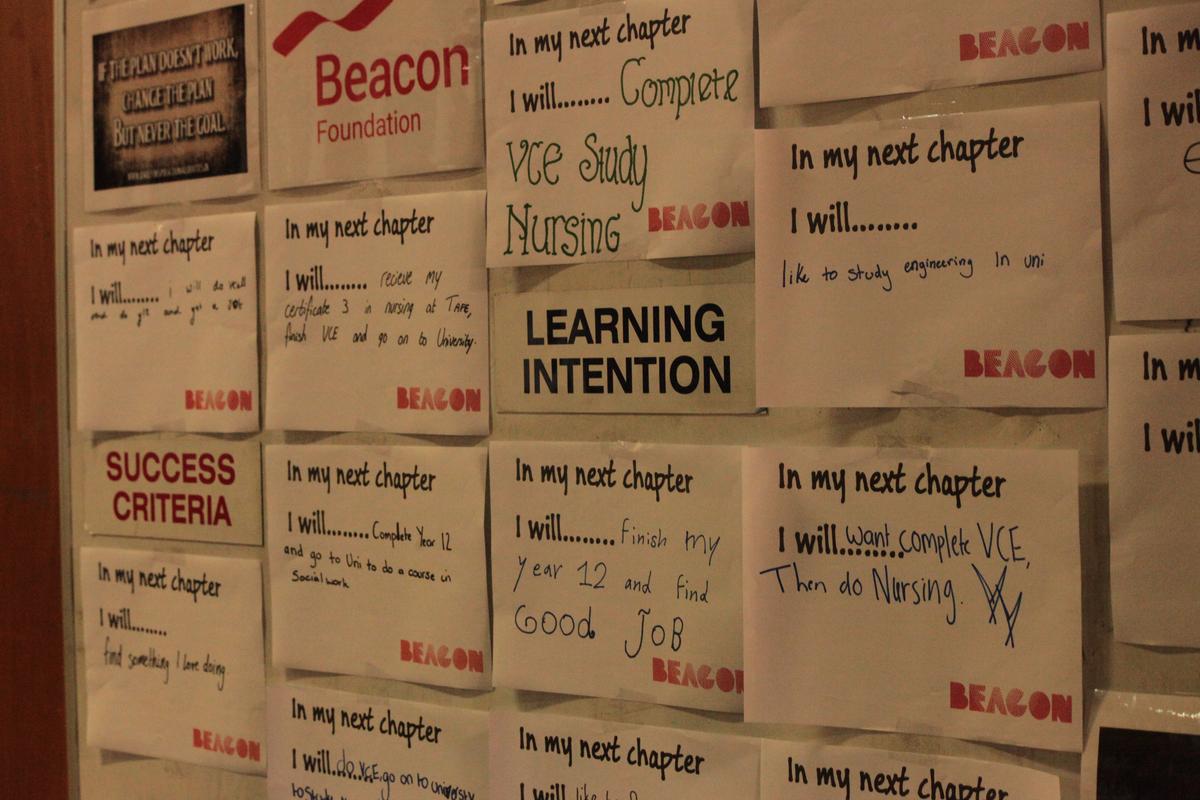 IF THE PLAN DOESN'T WORK,
CHANGE THE PLAN
BUT NEVER THE GOAL.
Beacon
Foundation
In my next chapter
I will........ Complete
VCE Study
Nursing
BEACON
BEACON
In my next chapter
I will........
like to study engineering In uni
BEACON
In m
I wil
In my next chapter
I will........ i will do well
and do y12 and get a
BEACON
In my next chapter
I will........ recieve my
certificate 3 in nursing at TAFE,
finish VCE and go on to University.
BEACON
LEARNING
INTENTION
SUCCESS
CRITERIA
In my next chapter
I will........ Complete Year 12
and go to Uni to do a course in
Social work
BEACON
In my next chapter
I will........ finish my
year 12 and find
GOOD JOB
BEACON
In my next chapter
I will........ want complete VCE,
Then do Nursing.
BEACON
In m
I wil
In my next chapter
I will........
find something I love doing.
BEACON
In my next chapter
I will........ do VCE, go on to university
to study
In my next chapter
I will like to
In my next chapter